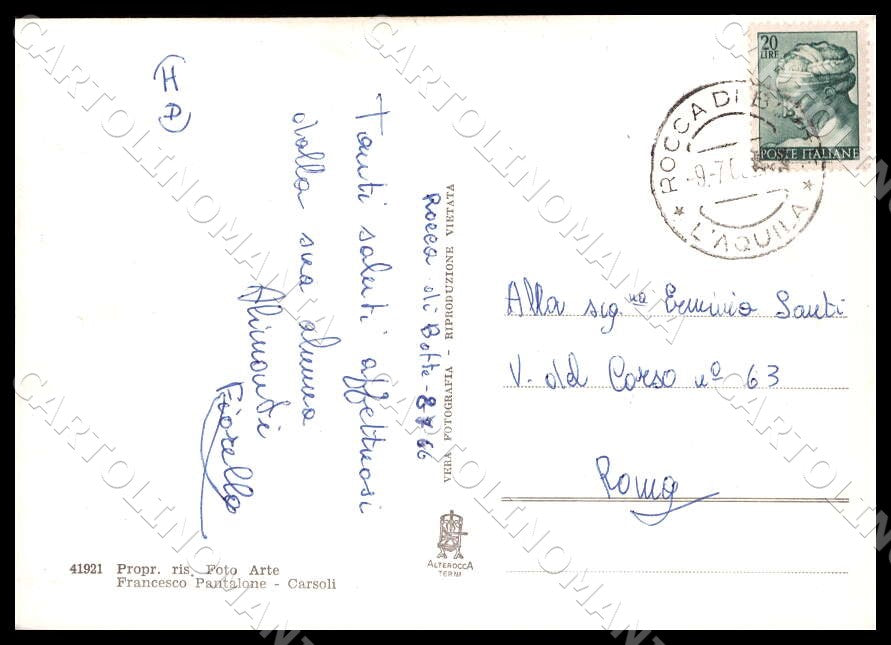 (I A)
Tanti saluti affettuosi
dalla sua alunna
Alimonti
Fiorella
Rocca di Botte - 8 7 66
VERA FOTOGRAFIA - RIPRODUZIONE VIETATA
20
LIRE
POSTE ITALIANE
ROCCA DI B
-9-7
* L'AQUILA *
Alla sig.na Erminia Santi
V. del Corso nº 63
Roma
ALTEROCCA
TERNI
41921 Propr. ris. Foto Arte
Francesco Pantalone - Carsoli
CARTOLINOMANIA